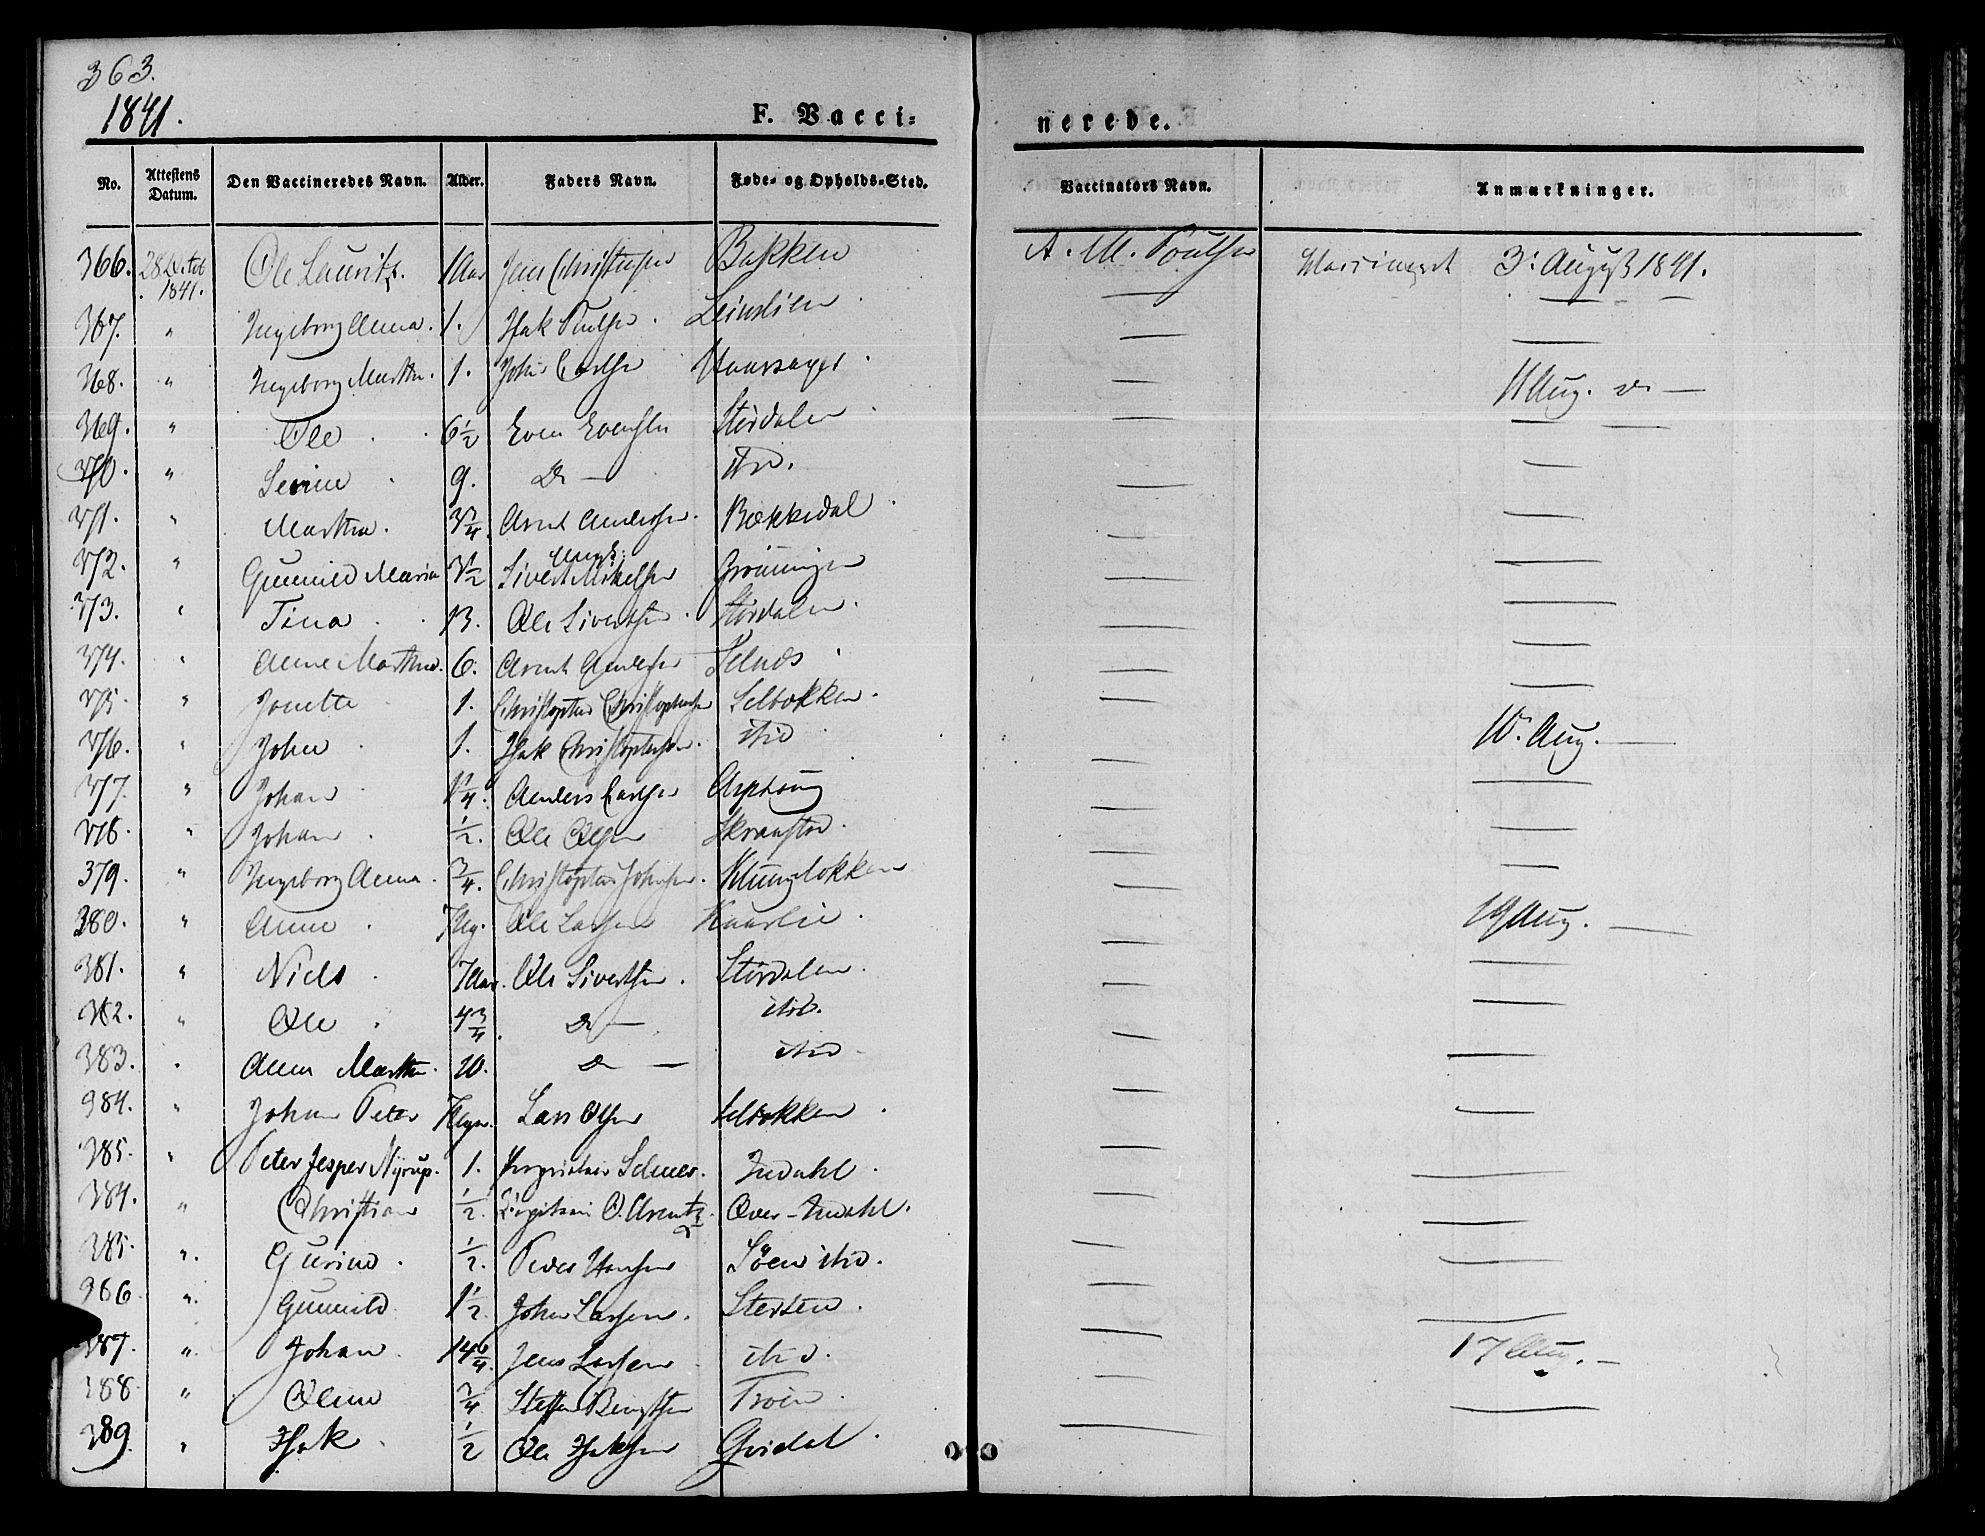 363.
1841.
F. Vacci=
nerede.
No. Attestens Datum. Den Vaccineredes Navn. Alder. Faders Navn. Føde- og Opholds-Sted. Vaccinators Navn. Anmærkninger.
366. 28 Octob 1841. Ole Lauritz. 1 Aar Jens Christensen Bakken A. M. Poulsen Vaccineret 3. August 1841.
367. " Ingeborg Anna. 1. Isak Leinslien — —
368. " Ingeborg Martha. 1. John — —
369. " Ole 6½ Even Evensen Stördalen — 11 Aug. do —
370. " Serine 9. Do — ibid. — —
371. " Martha. 3¾. Arnt Andersen. Bækkedal. — —
372. " Gunnild Maria 3½ Sivert Mikelsen Grönningen — —
373. " Tina 13. Ole Sivertsen. Stördalen. — —
374. " Anne Martha. 6. Arnt Andersen Selnæs — —
375. " Jonette 1. Christopher Christophersen Selbækken. — —
376. " John 1. Isak Christophersen. ibid — 10. Aug. —
377. " Johan 1¼. Anders Carlsen Asphoug — —
378. " Johan ½. Ole Olsen Skranstad. — —
379. " Ingeborg Anna. ¾. Christopher Johnsen. Klunglökken — —
380. " Anne 7 Ole Larsen Kaarlie. — 19 Aug. —
381. " Niels 7 Aar. Ole Sivertsen. Stördalen. — —
382. " Ole 4¾. Do — ibid. — —
383. " Anne Martha. 10. Do — ibid — —
984. " Johan Peter 7 Lars Olsen Selbækken — —
385. " Peter Jesper Nyrup. 1. Proprietair Selmer. Indahl. — —
384. " Christian ½. Capitain O. Arentz. Over-Indahl. — —
385. " Gurine. ½. Peder Hansen Söen ibid. — —
986. " Gunnild 1½ John Larsen. Stersen. — —
387. " Johan. 14 Jens Larsen ibid. — 17 Aug. —
388. " Oline ¾ Steffen Bengtsen Troen. — —
389. " Isak ½ Ole Isaksen Gridal. — —